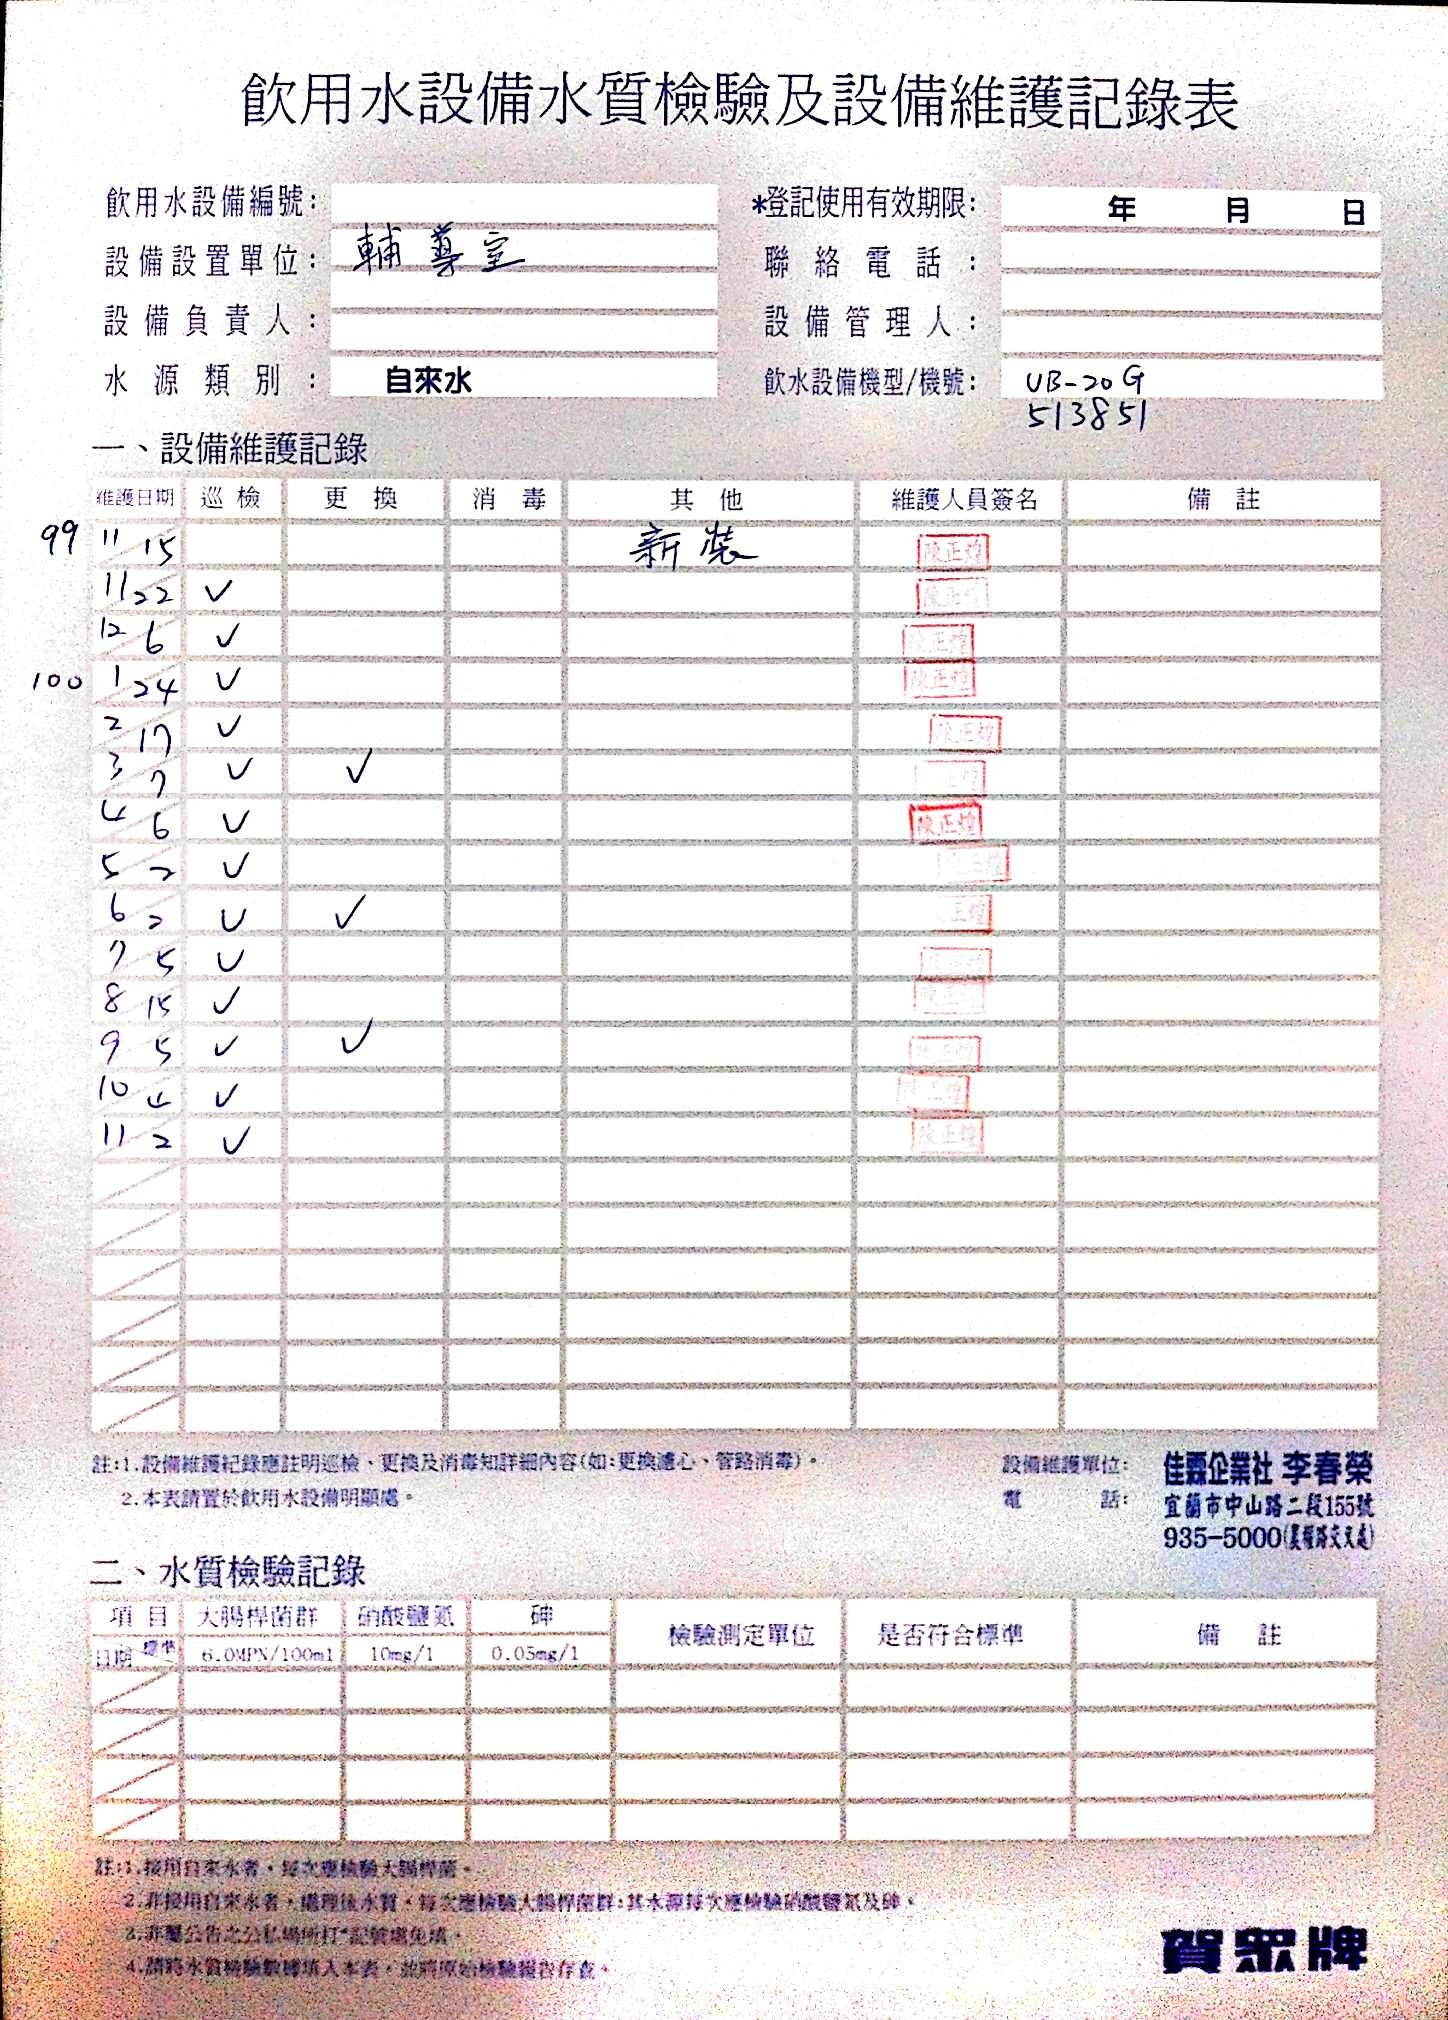 飲用水設備水質檢驗及設備維護記錄表
飲用水設備編號: *登記使用有效期限: 年 月 日
設備設置單位: 輔導室 聯絡電話:
設備負責人: 設備管理人:
水源類別: 自來水 飲水設備機型/機號: UB-20G
513851
一、設備維護記錄
維護日期 巡檢 更換 消毒 其他 維護人員簽名 備註
99 11/15 新裝 陳正煌
11/22 ✓ 陳正煌
12/6 ✓ 陳正煌
100 1/24 ✓ 陳正煌
2/17 ✓ 陳正煌
3/7 ✓ ✓ 正煌
4/6 ✓ 陳正煌
5/2 ✓
6/2 ✓ ✓ 正煌
7/5 ✓
8/15 ✓
9/5 ✓ ✓ 陳正煌
10/4 ✓ 陳正煌
11/2 ✓ 陳正煌
註:1.設備維護紀錄應註明巡檢、更換及消毒知詳細內容(如:更換濾心、管路消毒)。
2.本表請置於飲用水設備明顯處。
設備維護單位: 佳霖企業社 李春榮
電話: 宜蘭市中山路二段155號
935-5000
二、水質檢驗記錄
項目 大腸桿菌群 硝酸鹽氮 砷 檢驗測定單位 是否符合標準 備註
日期 標準 6.0MPN/100ml 10mg/l 0.05mg/l
註:1.接用自來水者,每次應檢驗大腸桿菌。
2.非接用自來水者,處理後水質,每次應檢驗大腸桿菌群;其水源每次應檢驗硝酸鹽氮及砷。
3.非屬公告之公私場所打*記號處免填。
4.請將水質檢驗數據填入本表,並將原始檢驗報告存查。
賀眾牌